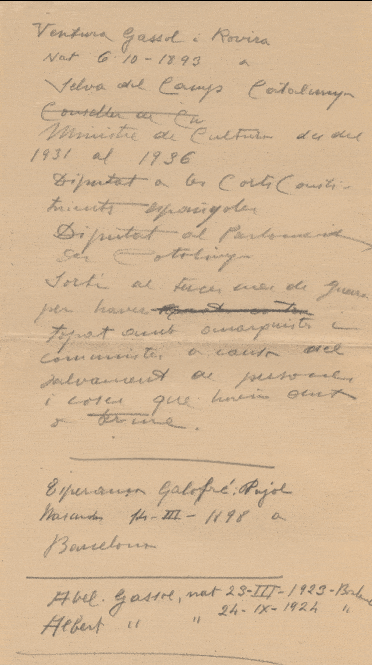 Ventura Gassol i Rovira
Nat 6-10-1893 a
Selva del Camp Catalunya
Conseller de Cu
Ministre de Cultura des del
1931 al 1936
Diputat a les Corts Consti-
tuients espanyoles
Diputat al Parlament
de Catalunya
Sortí al tercer mes de guerra
per haver
topat amb anarquistes i
comunistes a causa del
salvament de persones
i coses que havia dut
a terme.
Esperança Galofré i Pujol
Nascuda 14-III-1898 a
Barcelona
Abel Gassol, nat 23-III-1923-Barcelona
Albert " " 24-IX-1924 "